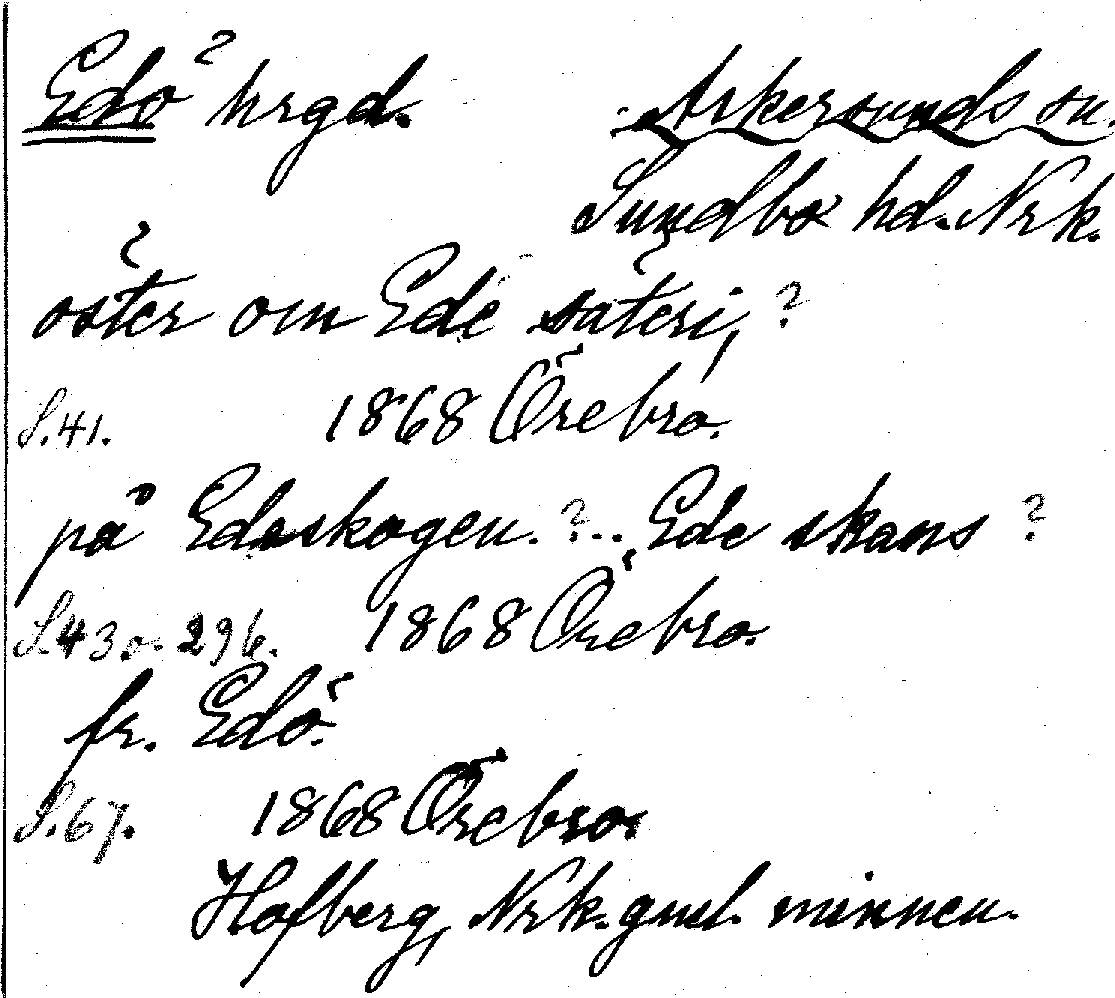 Edö hrgd. Askersunds sn.
Sundbo hd. Nrk.
öster om Ede säteri, ?
S.41. 1868 Örebro.
på Edeskogen. ? .. Ede skans ?
S.43 o. 296. 1868 Örebro.
fr. Edö.
S.67. 1868 Örebro.
Hofberg, Nrk. gml. minnen.